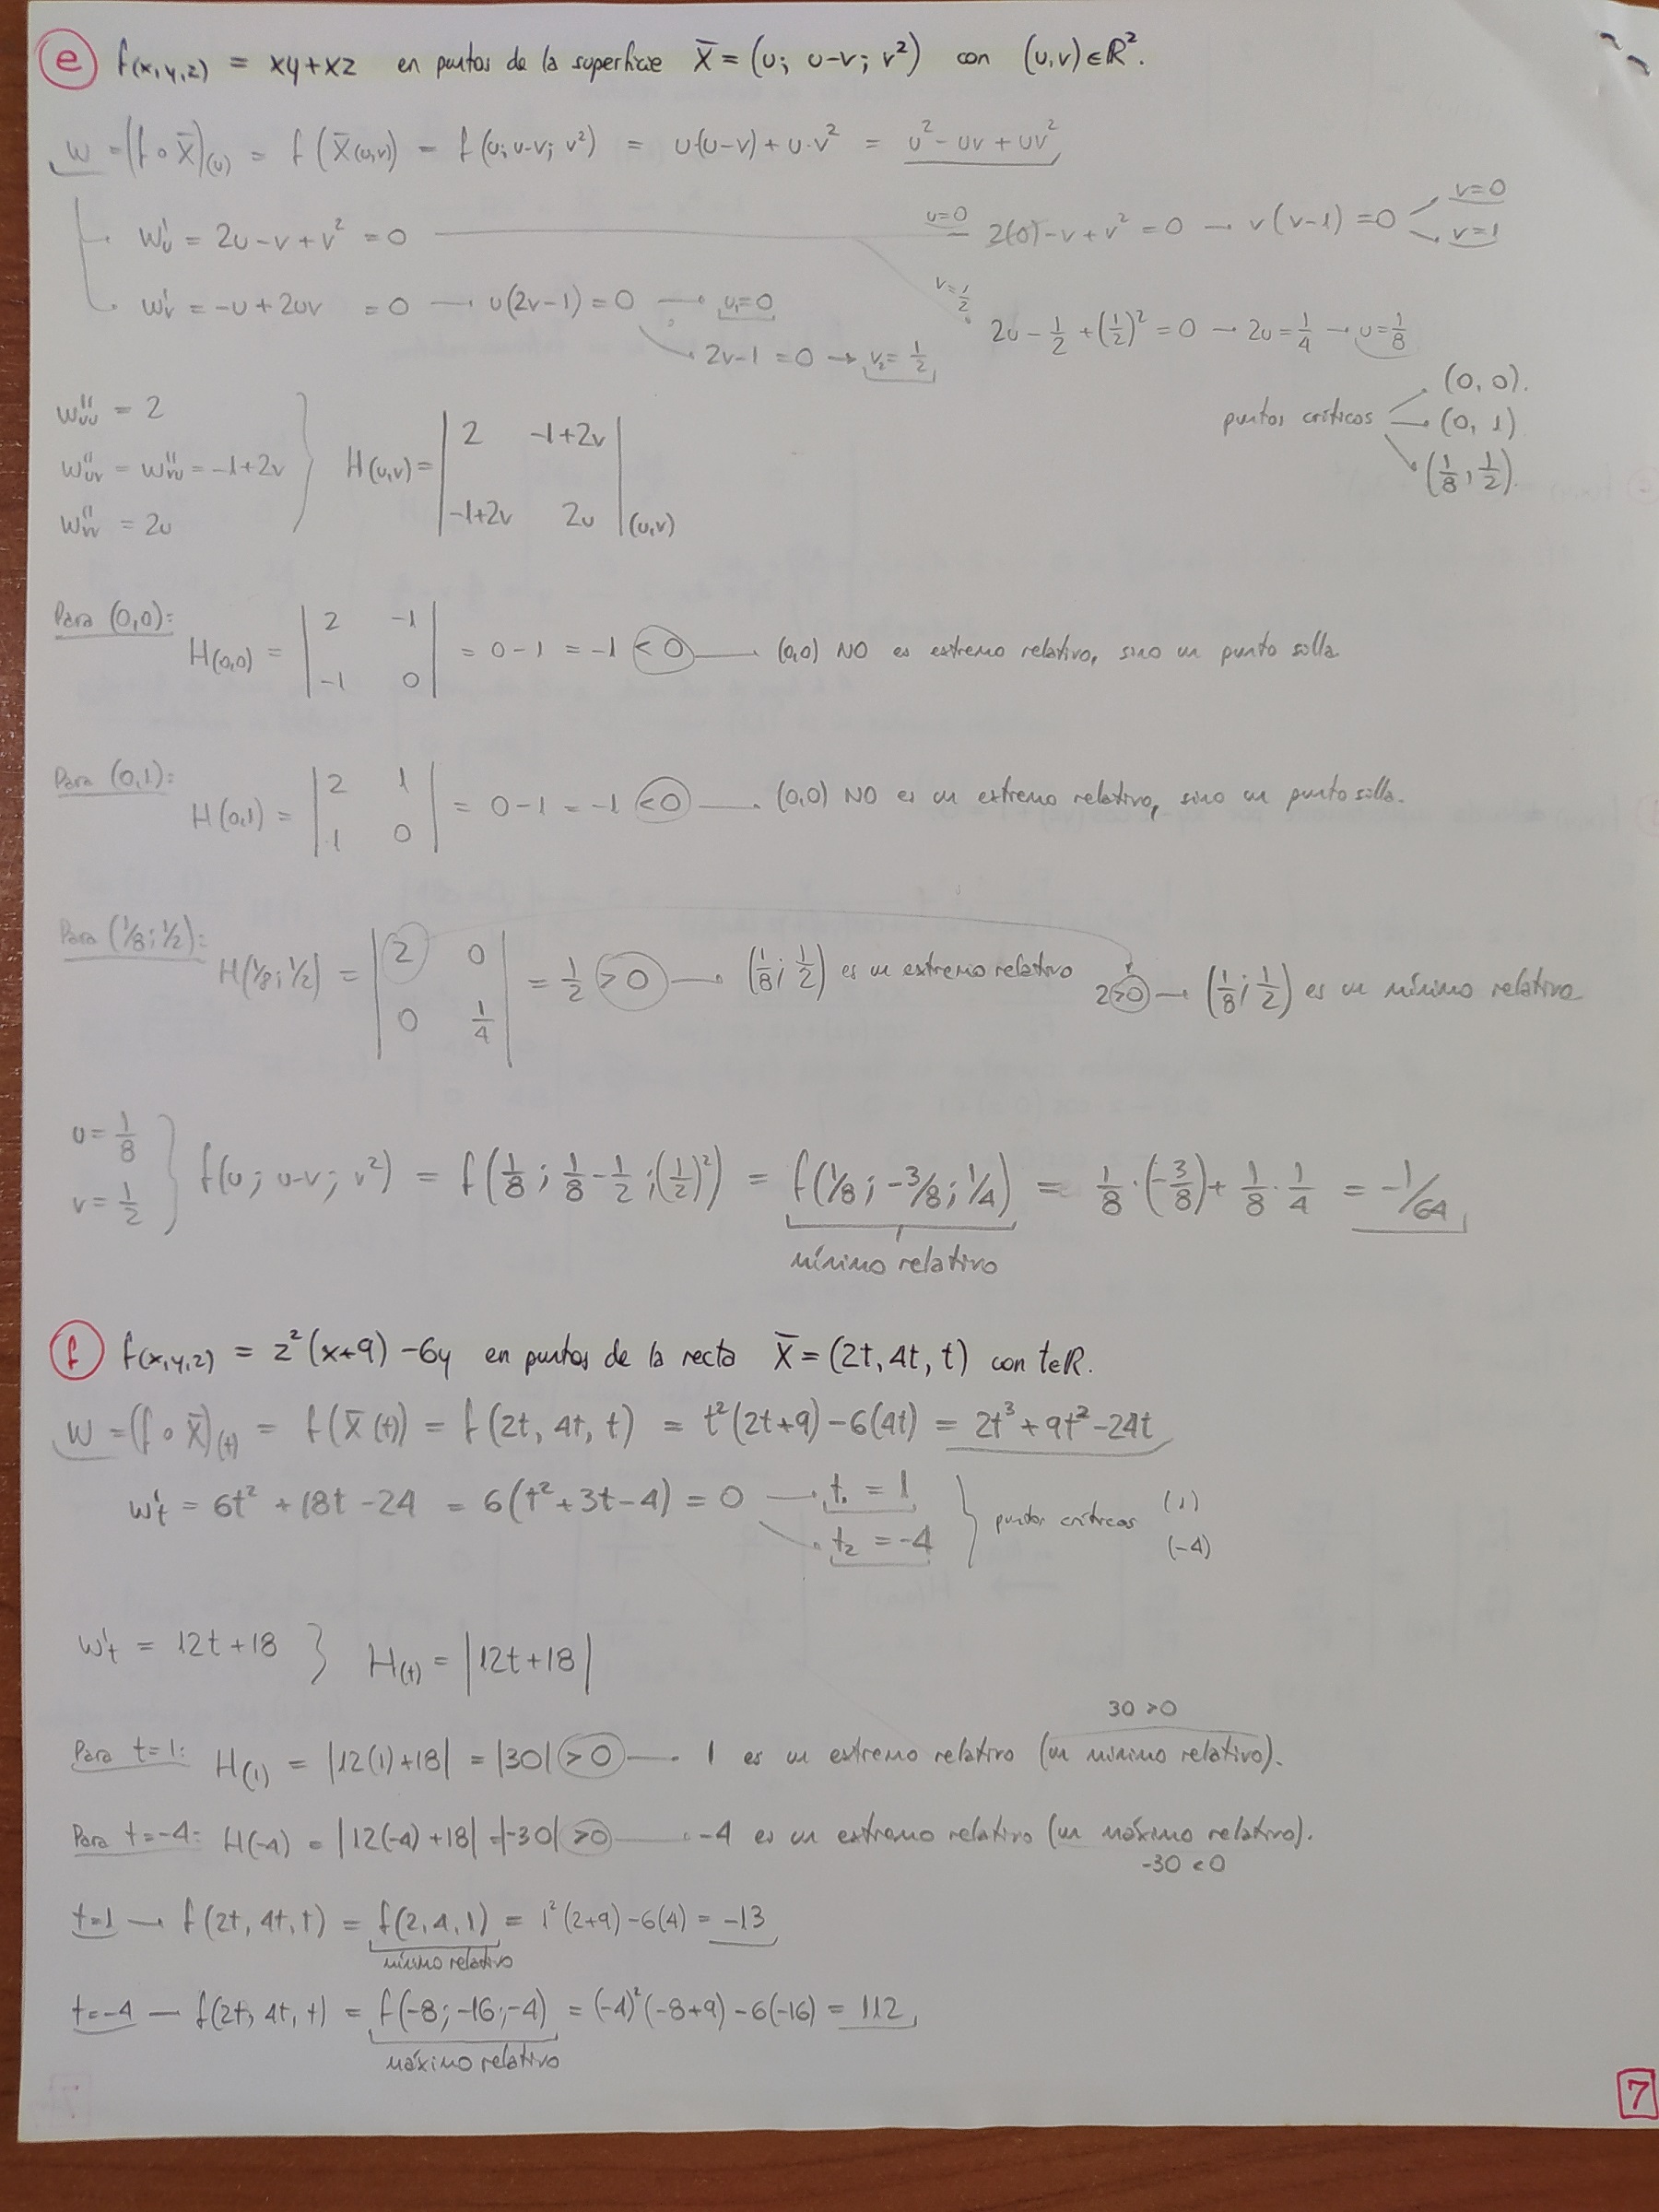 e f(x,y,z) = xy+xz en puntos de la superficie X̄ = (u; u-v; v²) con (u,v)∈ℝ².
w = (f∘X̄)(u) = f(X̄(u,v)) = f(u; u-v; v²) = u(u-v)+u·v² = u²-uv+uv²
w'u = 2u-v+v² = 0 u=0 2(0)-v+v² = 0 → v(v-1) = 0 v=0
v=1
w'v = -u+2uv = 0 → u(2v-1) = 0 → u₁=0
2v-1 = 0 → v₂ = 1/2
v=1/2 2u - 1/2 + (1/2)² = 0 → 2u = 1/4 → u = 1/8
puntos críticos (0,0).
(0, 1)
(1/8, 1/2).
w''uu = 2
w''uv = w''vu = -1+2v
w''vv = 2u
H(u,v) = | 2 -1+2v |
| -1+2v 2u | (u,v)
Para (0,0):
H(0,0) = | 2 -1 | = 0-1 = -1 < 0 → (0,0) NO es extremo relativo, sino un punto silla
| -1 0 |
Para (0,1):
H(0,1) = | 2 1 | = 0-1 = -1 < 0 → (0,0) NO es un extremo relativo, sino un punto silla.
| 1 0 |
Para (1/8; 1/2):
H(1/8; 1/2) = | 2 0 | = 1/2 > 0 → (1/8; 1/2) es un extremo relativo 2>0 → (1/8; 1/2) es un mínimo relativo
| 0 1/4 |
u = 1/8
v = 1/2
f(u; u-v; v²) = f(1/8; 1/8-1/2; (1/2)²) = f(1/8; -3/8; 1/4) = 1/8·(-3/8)+1/8·1/4 = -1/64
mínimo relativo
f f(x,y,z) = z²(x+9)-6y en puntos de la recta X̄ = (2t, 4t, t) con t∈ℝ.
w = (f∘X̄)(t) = f(X̄(t)) = f(2t, 4t, t) = t²(2t+9)-6(4t) = 2t³+9t²-24t
w't = 6t²+18t-24 = 6(t²+3t-4) = 0 → t₁ = 1
t₂ = -4
puntos críticos (1)
(-4)
w't = 12t+18 } H(t) = |12t+18|
30 > 0
Para t=1: H(1) = |12(1)+18| = |30| > 0 → 1 es un extremo relativo (un mínimo relativo).
Para t=-4: H(-4) = |12(-4)+18| = |-30| > 0 → -4 es un extremo relativo (un máximo relativo).
-30 < 0
t=1 → f(2t, 4t, t) = f(2,4,1) = 1²(2+9)-6(4) = -13
mínimo relativo
t=-4 → f(2t, 4t, t) = f(-8; -16; -4) = (-4)²(-8+9)-6(-16) = 112
máximo relativo
7